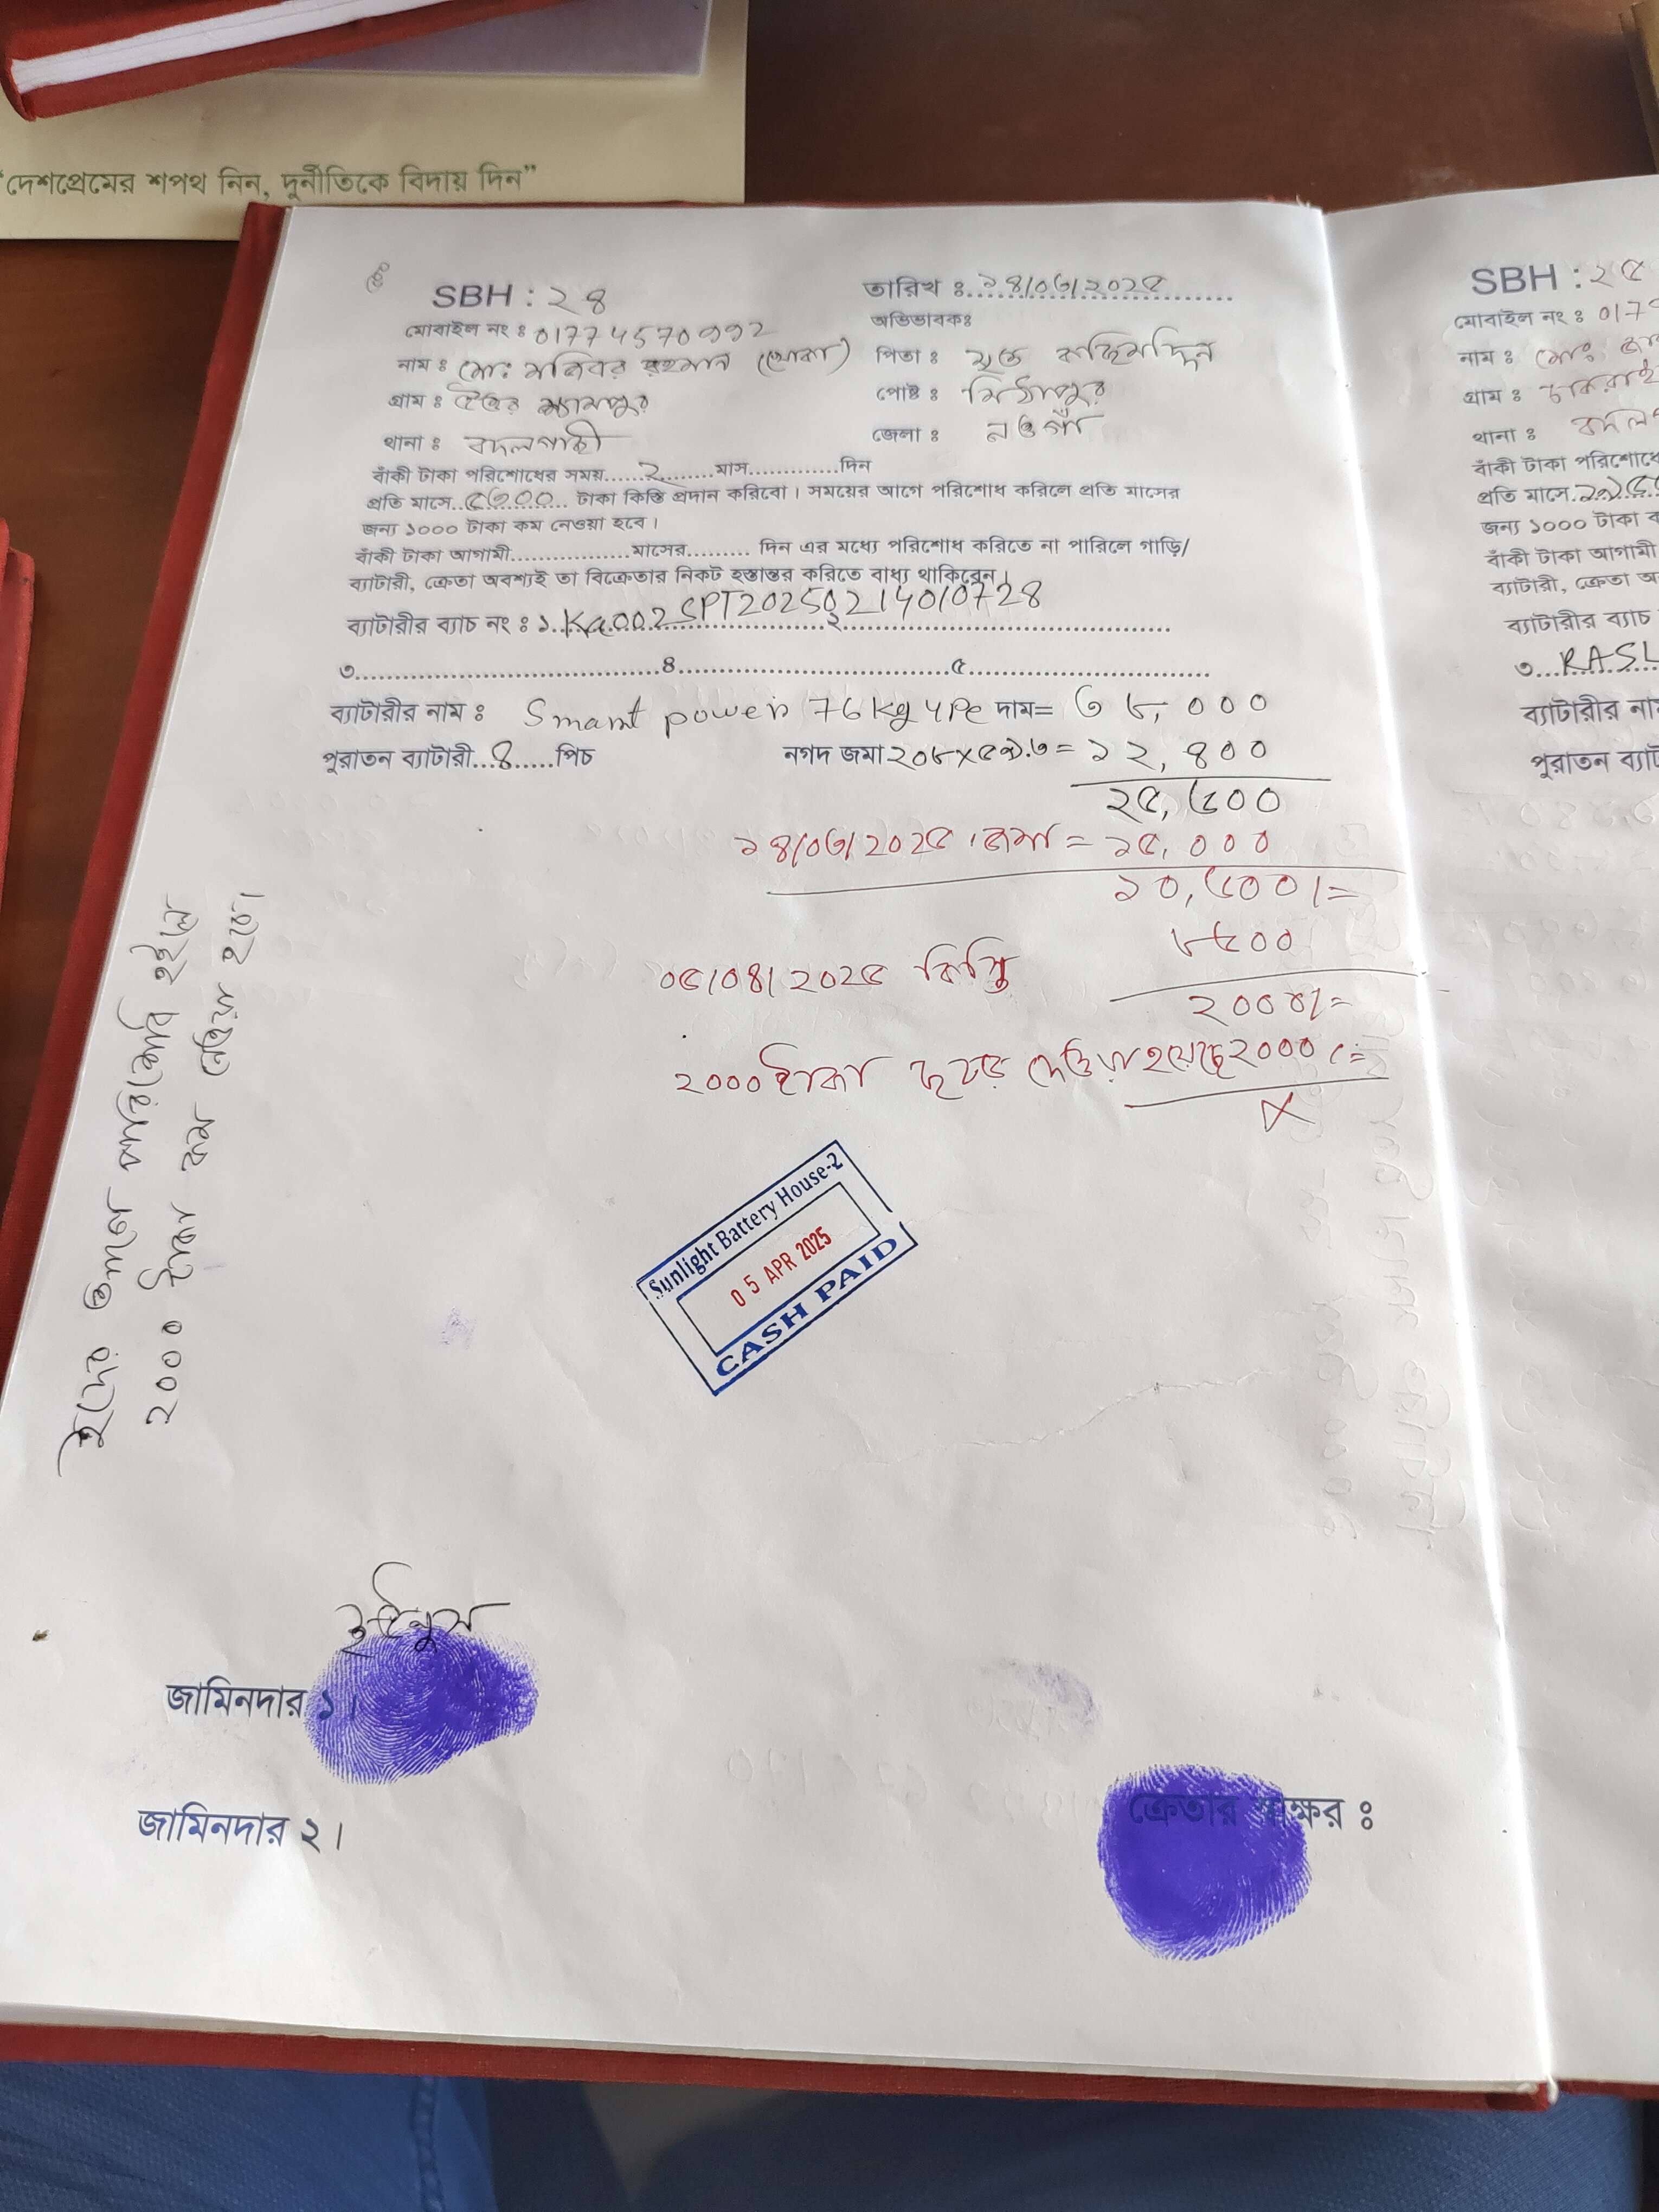 “দেশপ্রেমের শপথ নিন, দুর্নীতিকে বিদায় দিন”
SBH : ২৪
তারিখ ঃ ১৪/০৩/২০২৫
মোবাইল নং ঃ
অভিভাবকঃ
নাম ঃ মোঃ মজিবর রহমান (খোকা)
পিতা ঃ মৃত
গ্রাম ঃ উত্তর শ্যামপুর
পোষ্ট ঃ মিঠাপুর
থানা ঃ বদলগাছী
জেলা ঃ নওগাঁ
বাঁকী টাকা পরিশোধের সময়......২......মাস..............দিন
প্রতি মাসে..৫৩০০... টাকা কিস্তি প্রদান করিবো। সময়ের আগে পরিশোধ করিলে প্রতি মাসের
জন্য ১০০০ টাকা কম নেওয়া হবে।
বাঁকী টাকা আগামী..................মাসের.......... দিন এর মধ্যে পরিশোধ করিতে না পারিলে গাড়ি/
ব্যাটারী, ক্রেতা অবশ্যই তা বিক্রেতার নিকট হস্তান্তর করিতে বাধ্য থাকিবেন।
ব্যাটারীর ব্যাচ নং ঃ ১. SPT20250214010728 ২
৩..................৪..................৫..................
ব্যাটারীর নাম ঃ Smart power 76kg 4Pc দাম= ৩৮,০০০
পুরাতন ব্যাটারী...৪......পিচ
নগদ জমা ২০৮×৫৯.৬ = ১২,৪০০
২৫,৬০০
১৪/০৩/২০২৫ জমা = ১৫,০০০
১০,৬০০/=
৮৬০০
০৫/০৪/২০২৫ কিস্তি
২০০০/=
২০০০ টাকা ছাড় দেওয়া হয়েছে ২০০০/=
Sunlight Battery House-2
05 APR 2025
CASH PAID
ঈদের আগে পরিশোধ হইলে
২০০০ টাকা কম নেওয়া হবে।
ইউনুস
জামিনদার ১।
জামিনদার ২।
ক্রেতার স্বাক্ষর ঃ
SBH : ২৫
মোবাইল নং ঃ
নাম ঃ মোঃ
গ্রাম ঃ
থানা ঃ
বাঁকী টাকা
প্রতি মাসে
জন্য ১০০০ টাকা
বাঁকী টাকা আগামী
ব্যাটারী, ক্রেতা
ব্যাটারীর ব্যাচ
৩... RASL
ব্যাটারীর
পুরাতন